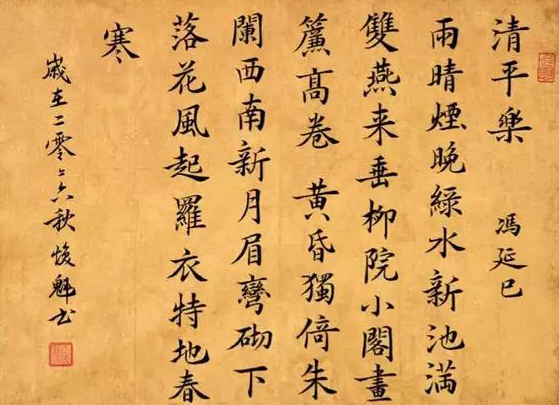 清平樂 馮延巳
雨晴煙晚綠水新池滿
雙燕来垂柳院小閣畫
簾髙卷 黄昏獨倚朱
闌西南新月眉彎砌下
落花風起羅衣特地春
寒
歲在二零〻六秋魁书